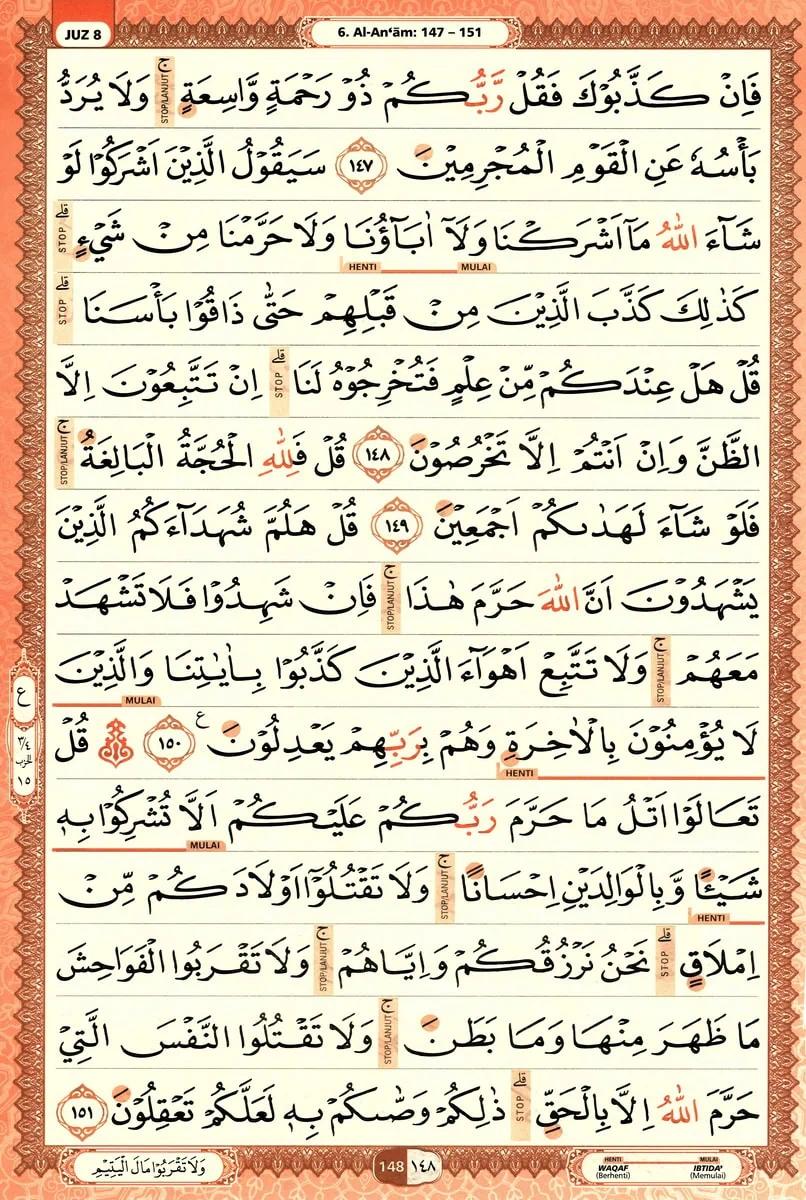 JUZ 8
6. Al-An‘ām: 147 – 151
فَاِنْ كَذَّبُوْكَ فَقُلْ رَّبُّكُمْ ذُوْ رَحْمَةٍ وَّاسِعَةٍۚ STOP/LANJUT وَلَا يُرَدُّ
بَأْسُهٗ عَنِ الْقَوْمِ الْمُجْرِمِيْنَ ١٤٧ سَيَقُوْلُ الَّذِيْنَ اَشْرَكُوْا لَوْ
شَاۤءَ اللّٰهُ مَآ اَشْرَكْنَا وَلَآ اٰبَاۤؤُنَا وَلَا حَرَّمْنَا مِنْ شَيْءٍۗ STOP
HENTI MULAI
كَذٰلِكَ كَذَّبَ الَّذِيْنَ مِنْ قَبْلِهِمْ حَتّٰى ذَاقُوْا بَأْسَنَاۗ STOP
قُلْ هَلْ عِنْدَكُمْ مِّنْ عِلْمٍ فَتُخْرِجُوْهُ لَنَاۗ STOP اِنْ تَتَّبِعُوْنَ اِلَّا
الظَّنَّ وَاِنْ اَنْتُمْ اِلَّا تَخْرُصُوْنَ ١٤٨ قُلْ فَلِلّٰهِ الْحُجَّةُ الْبَالِغَةُۚ STOP/LANJUT
فَلَوْ شَاۤءَ لَهَدٰىكُمْ اَجْمَعِيْنَ ١٤٩ قُلْ هَلُمَّ شُهَدَاۤءَكُمُ الَّذِيْنَ
يَشْهَدُوْنَ اَنَّ اللّٰهَ حَرَّمَ هٰذَاۚ STOP/LANJUT فَاِنْ شَهِدُوْا فَلَا تَشْهَدْ
مَعَهُمْۚ STOP/LANJUT وَلَا تَتَّبِعْ اَهْوَاۤءَ الَّذِيْنَ كَذَّبُوْا بِاٰيٰتِنَا وَالَّذِيْنَ
MULAI
لَا يُؤْمِنُوْنَ بِالْاٰخِرَةِ وَهُمْ بِرَبِّهِمْ يَعْدِلُوْنَ ع ١٥٠ قُلْ
HENTI
تَعَالَوْا اَتْلُ مَا حَرَّمَ رَبُّكُمْ عَلَيْكُمْ اَلَّا تُشْرِكُوْا بِهٖ
MULAI
شَيْـًٔا وَّبِالْوَالِدَيْنِ اِحْسَانًاۚ STOP/LANJUT وَلَا تَقْتُلُوْٓا اَوْلَادَكُمْ مِّنْ
HENTI
اِمْلَاقٍۗ STOP نَحْنُ نَرْزُقُكُمْ وَاِيَّاهُمْۚ STOP/LANJUT وَلَا تَقْرَبُوا الْفَوَاحِشَ
مَا ظَهَرَ مِنْهَا وَمَا بَطَنَۚ STOP/LANJUT وَلَا تَقْتُلُوا النَّفْسَ الَّتِيْ
حَرَّمَ اللّٰهُ اِلَّا بِالْحَقِّۗ STOP ذٰلِكُمْ وَصّٰىكُمْ بِهٖ لَعَلَّكُمْ تَعْقِلُوْنَ ١٥١
ع
٣/٤
الحزب
١٥
وَلَا تَقْرَبُوْا مَالَ الْيَتِيْمِ
148 ١٤٨
HENTI MULAI
WAQAF IBTIDA’
(Berhenti) (Memulai)